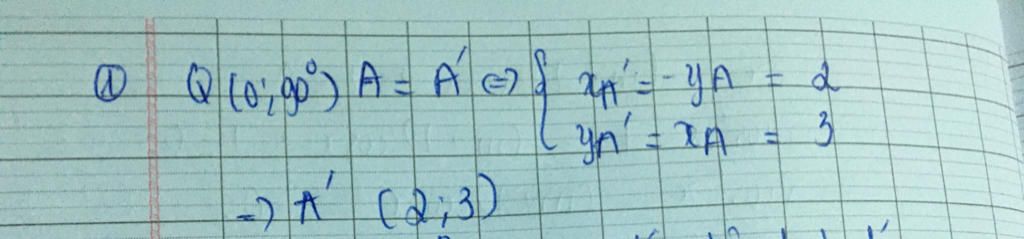 ① Q(0;90°) A = A' ⇔ { xA' = -yA = 2
yA' = xA = 3
=> A' (2;3)